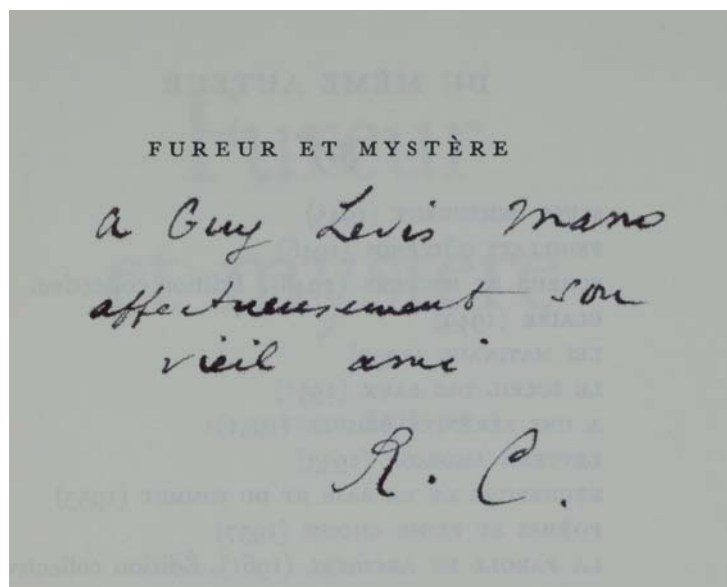 FUREUR ET MYSTÈRE
a Guy Levis Mano
affectueusement son
vieil ami
R. C.